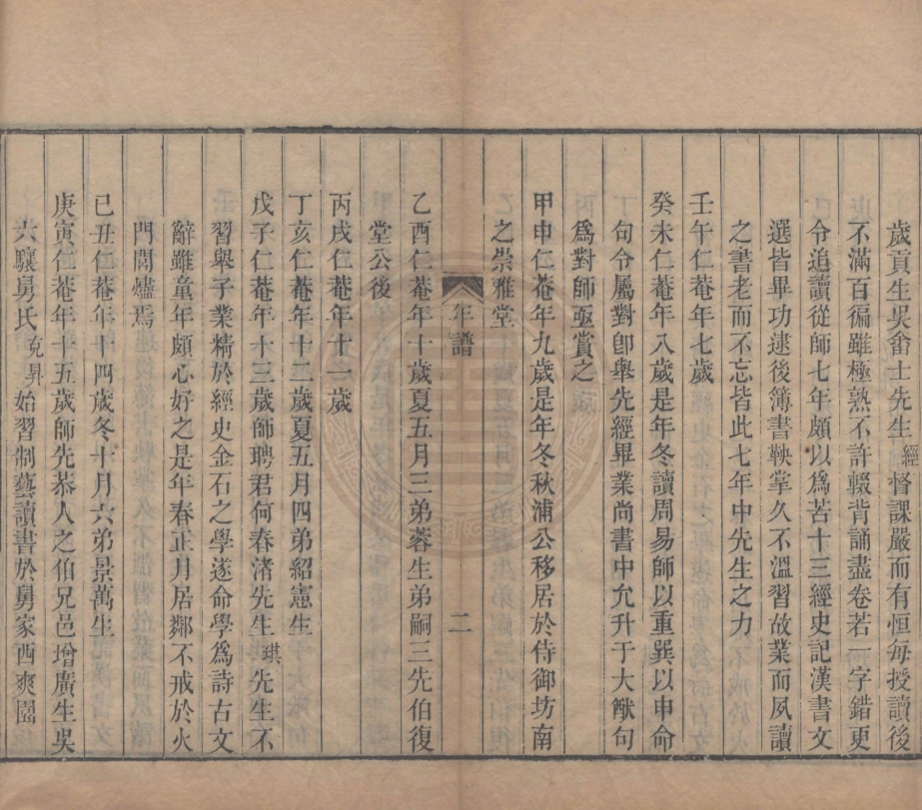 歲貢生吳畬士先生經督課嚴而有恒每授讀後
不滿百徧雖極熟不許輟背誦盡卷若一字錯更
令追讀從師七年頗以爲苦十三經史記漢書文
選皆畢功逮後簿書鞅掌久不溫習故業而夙讀
之書老而不忘皆此七年中先生之力
壬午仁菴年七歲
癸未仁菴年八歲是年冬讀周易師以重巽以申命
句令屬對卽舉先經畢業尚書中允升于大猷句
爲對師亟賞之
甲申仁菴年九歲是年冬秋浦公移居於侍御坊南
之崇雅堂
年譜 二
乙酉仁菴年十歲夏五月三弟蓉生弟嗣三先伯復
堂公後
丙戌仁菴年十一歲
丁亥仁菴年十二歲夏五月四弟紹憲生
戊子仁菴年十三歲師聘君何春渚先生琪先生不
習舉子業精於經史金石之學遂命學爲詩古文
辭雖童年頗心好之是年春正月居鄰不戒於火
門閭燼焉
己丑仁菴年十四歲冬十月六弟景萬生
庚寅仁菴年十五歲師先恭人之伯兄邑增廣生吳
六驤舅氏充昇始習制藝讀書於舅家西爽園